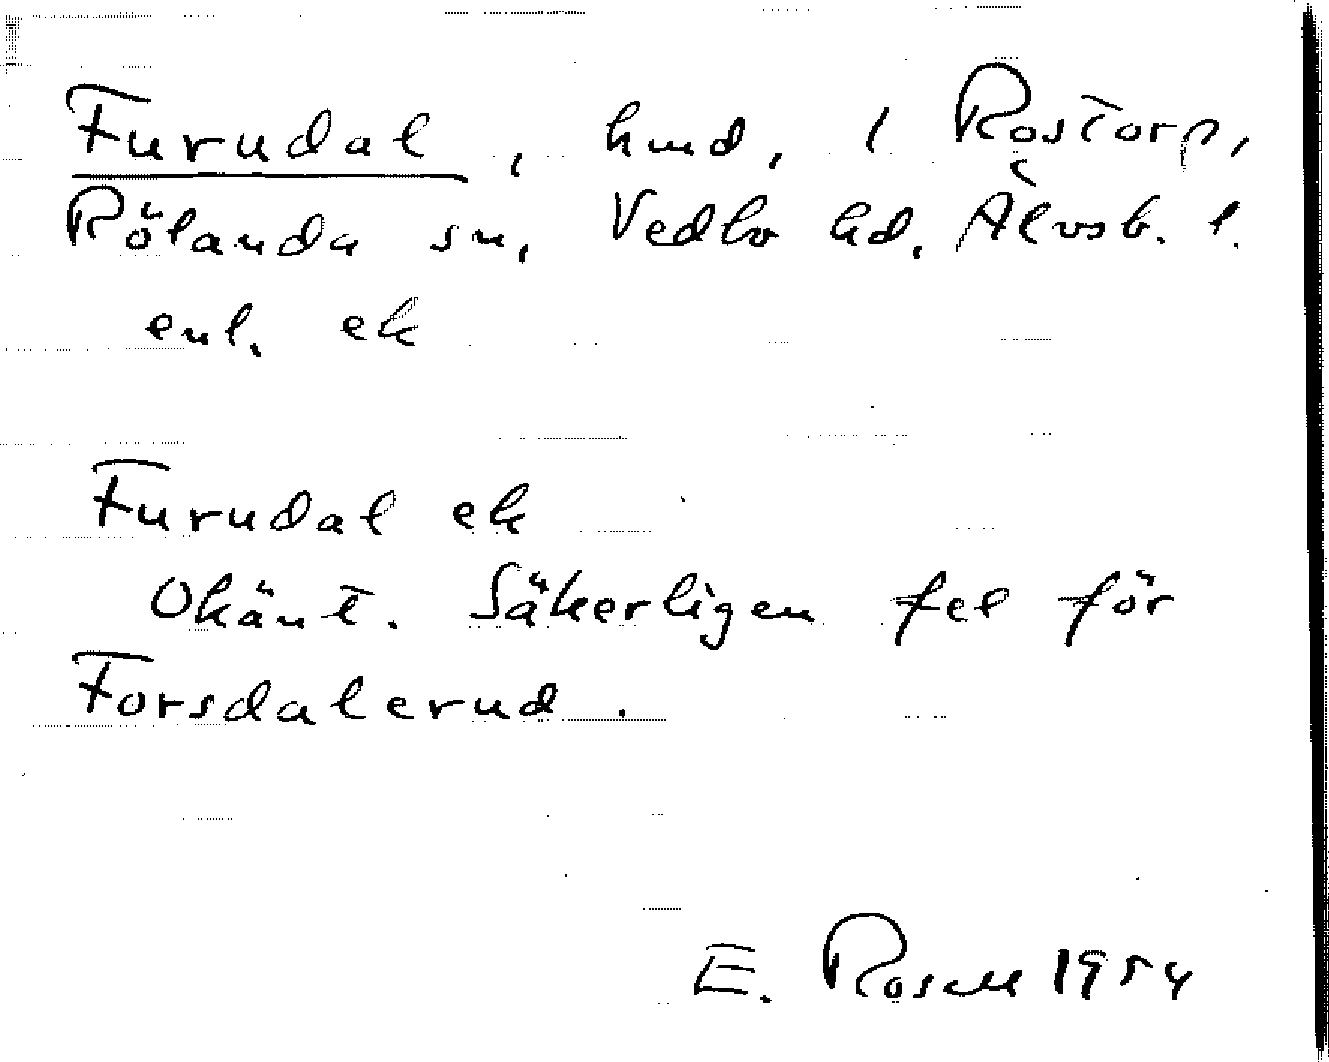 Furudal, hmd, i Rostorp,
Rölanda sn, Vedbo hd, Älvsb. l.
enl. ek
Furudal ek
Okänt. Säkerligen fel för
Forsdalerud.
E. Rosell 1954